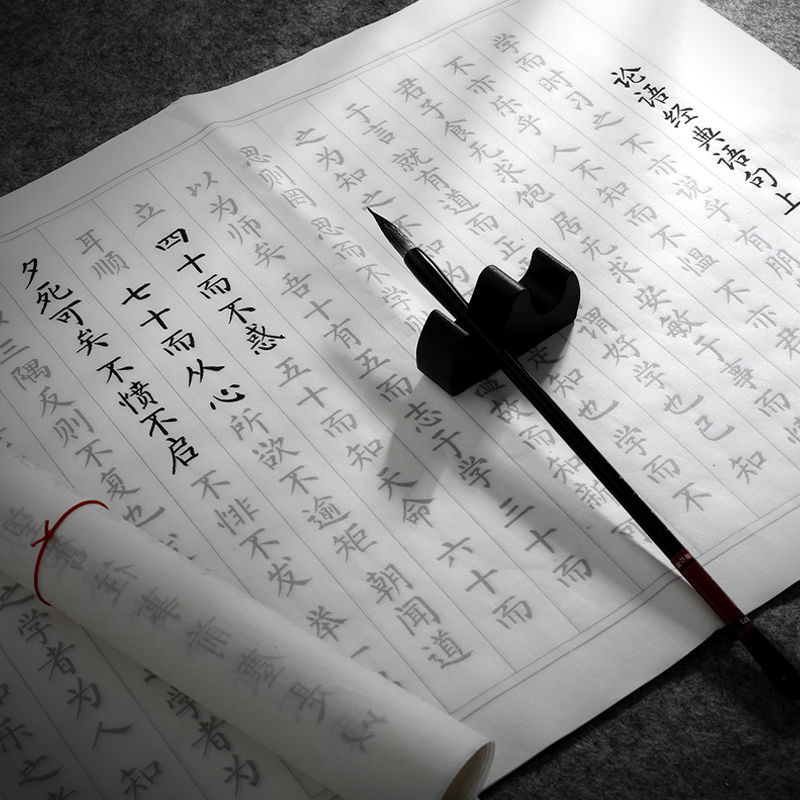 论语经典语句上
学而时习之不亦说乎有朋
不亦乐乎人不知而不愠不亦君
君子食无求饱居无求安敏于事而慎
于言就有道而正谓好学也已知
之为知之不知为是知也学而不
思则罔思而不学则温故而知新可
以为师矣吾十有五而志于学三十而
立四十而不惑五十而知天命六十而
耳顺七十而从心所欲不逾矩朝闻道
夕死可矣不愤不启不悱不发举一
三隅反则不复也
学者为
之学者为人知
乐之